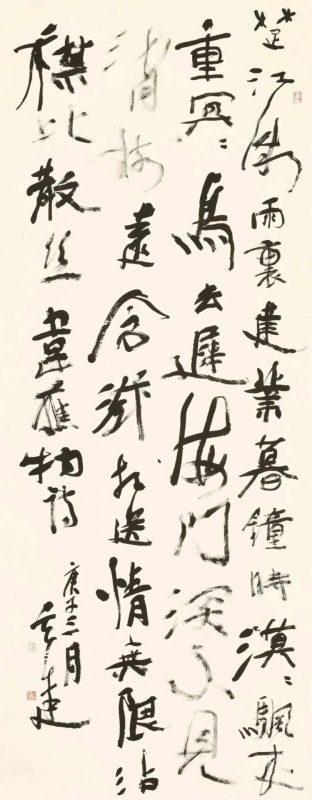 楚江微雨裏建業暮鐘時漠〻颿來
重冥〻鳥去遲海門深不見
浦樹遠含滋相送情無限沾
襟比散絲韋應物詩
庚子三月